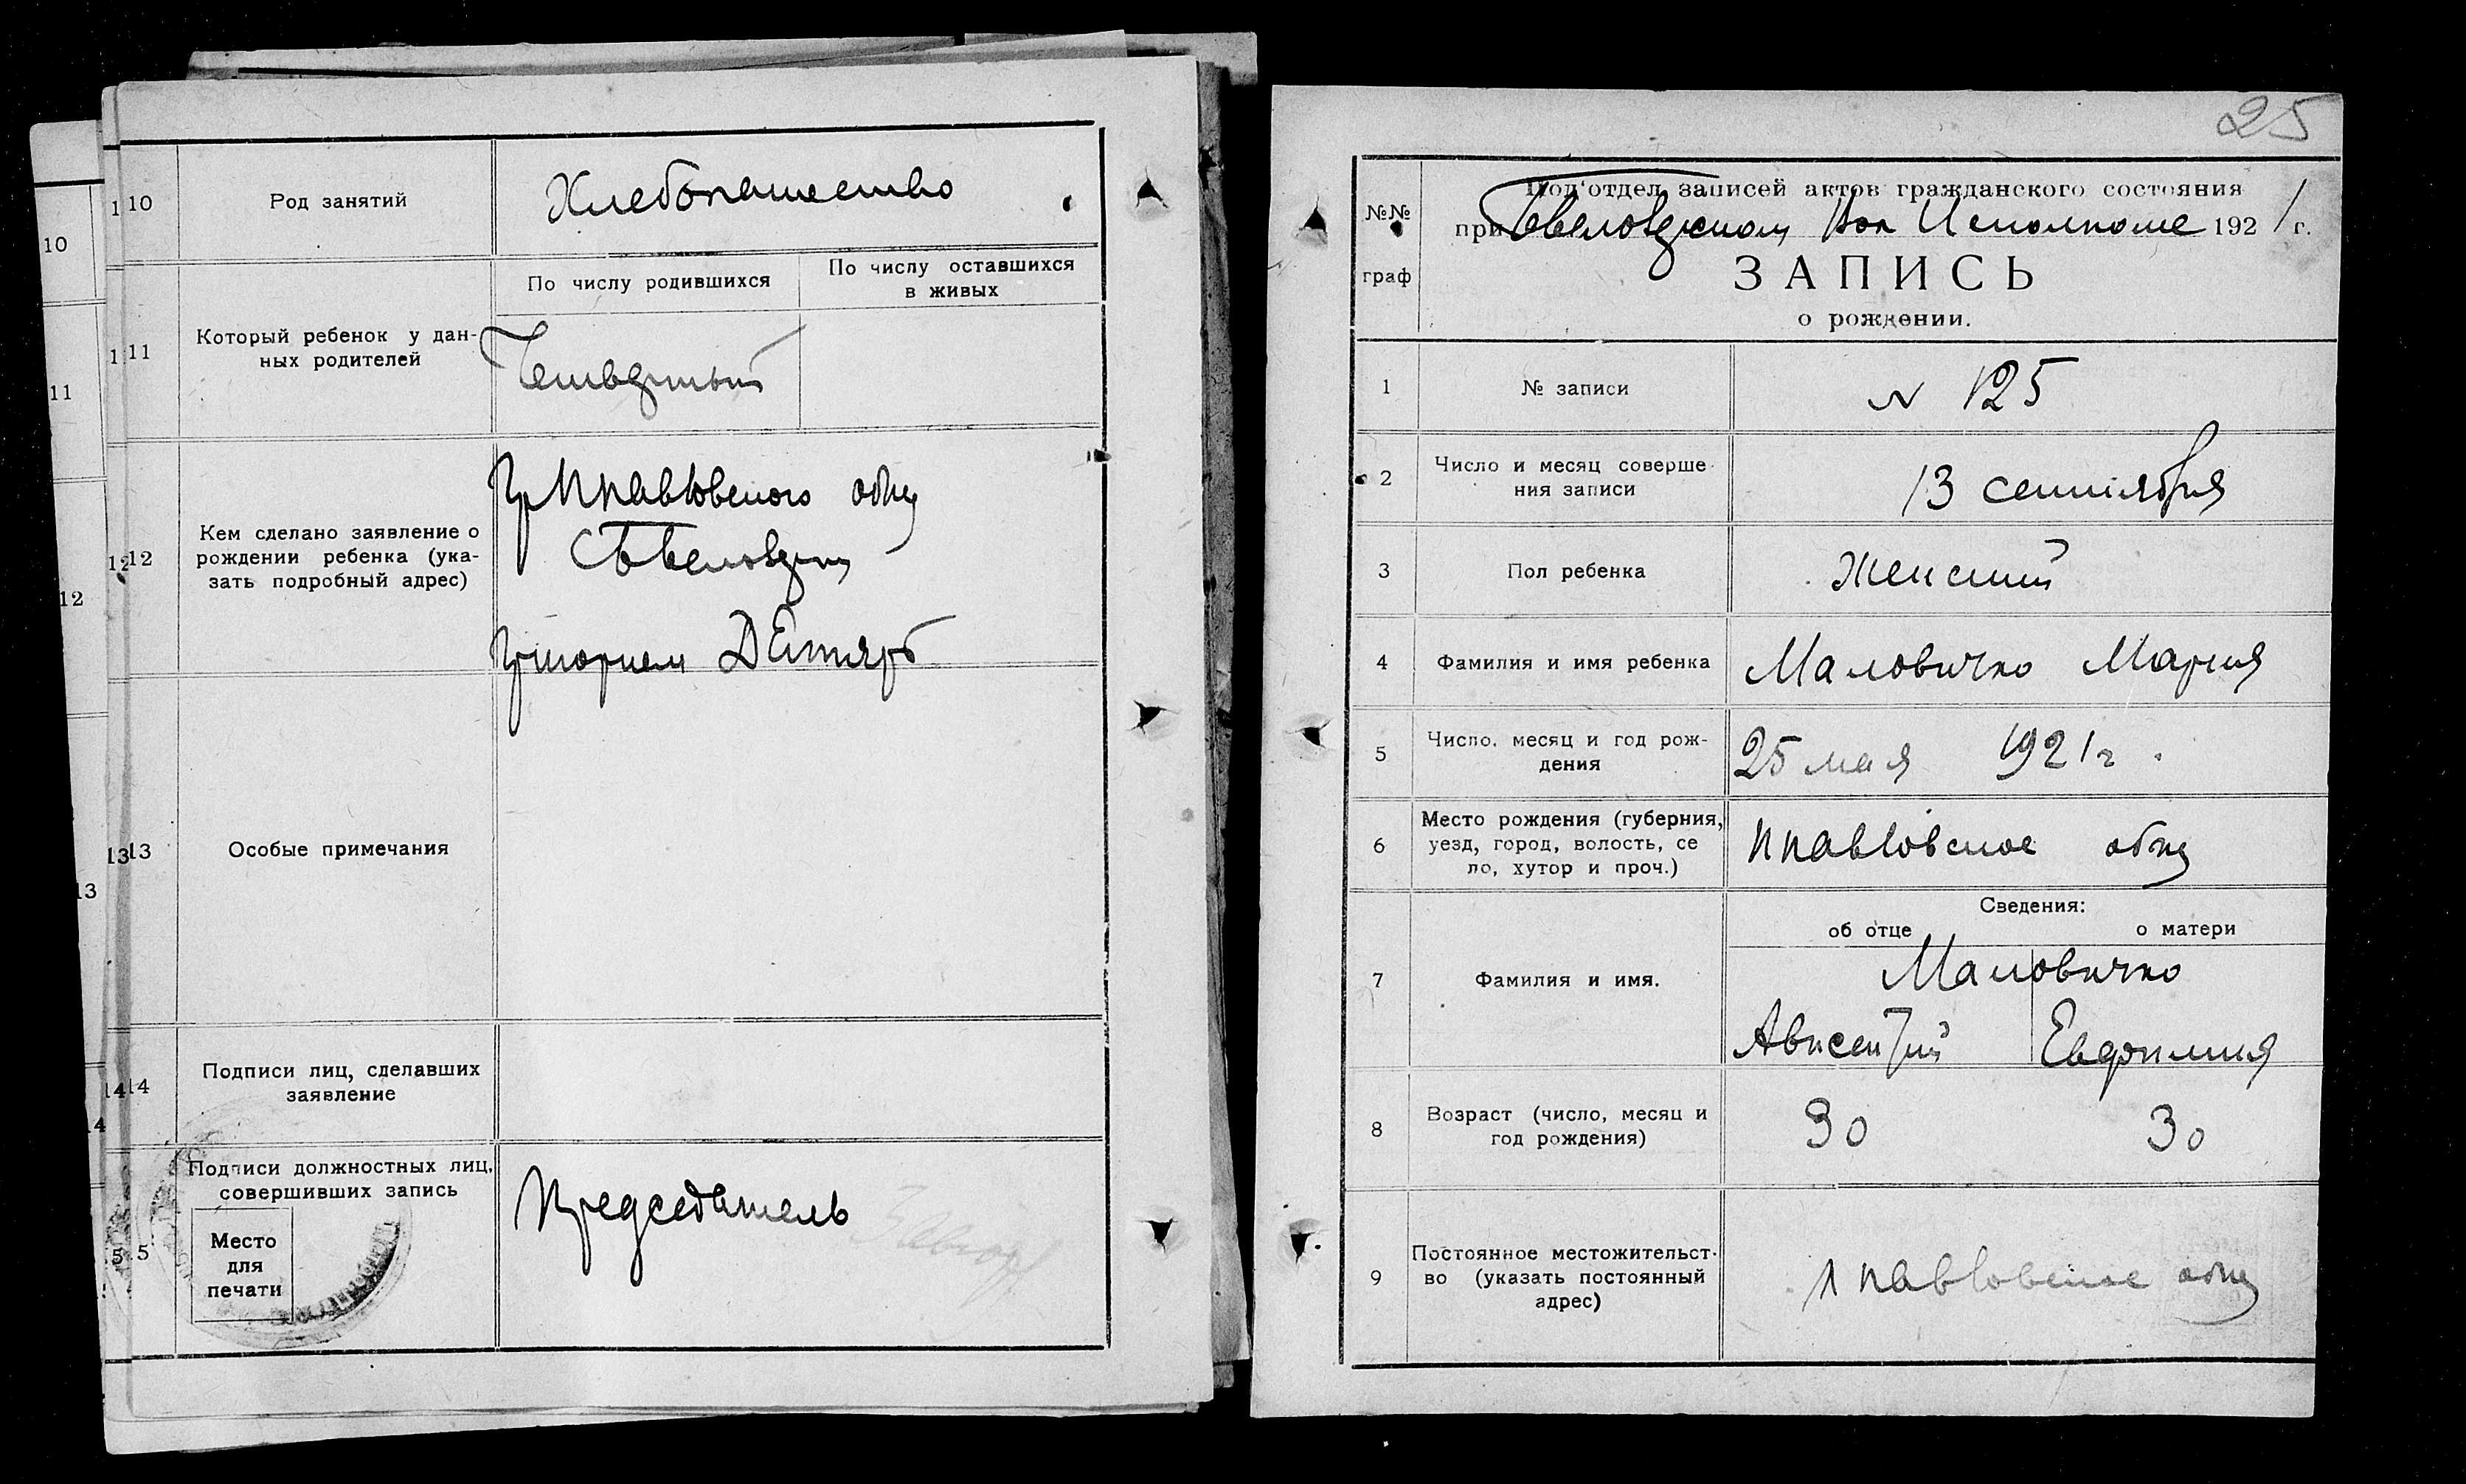 10
11
12
13
10
Род занятий
Хлебопашество
11
Который ребенок у дан-
ных родителей
По числу родившихся
По числу оставшихся
в живых
Четвертый
12
Кем сделано заявление о
рождении ребенка (ука-
зать подробный адрес)
Гр
Григорием Дегтярь
13
Особые примечания
14
Подписи лиц, сделавших
заявление
15
Подписи должностных лиц,
совершивших запись
Место
для
печати
Председатель
25
№№
граф
Под'отдел записей актов гражданского состояния
при Вол Исполкоме 1921 г.
ЗАПИСЬ
о рождении.
1
№ записи
N 125
2
Число и месяц соверше-
ния записи
13 сентября
3
Пол ребенка
Женский
4
Фамилия и имя ребенка
Маловичко Мария
5
Число, месяц и год рож-
дения
25 мая 1921 г.
6
Место рождения (губерния,
уезд, город, волость, се
ло, хутор и проч.)
7
Фамилия и имя.
Сведения:
об отце
о матери
Маловичко
Авксентий
Евдокимия
8
Возраст (число, месяц и
год рождения)
30
30
9
Постоянное местожительст-
во (указать постоянный
адрес)